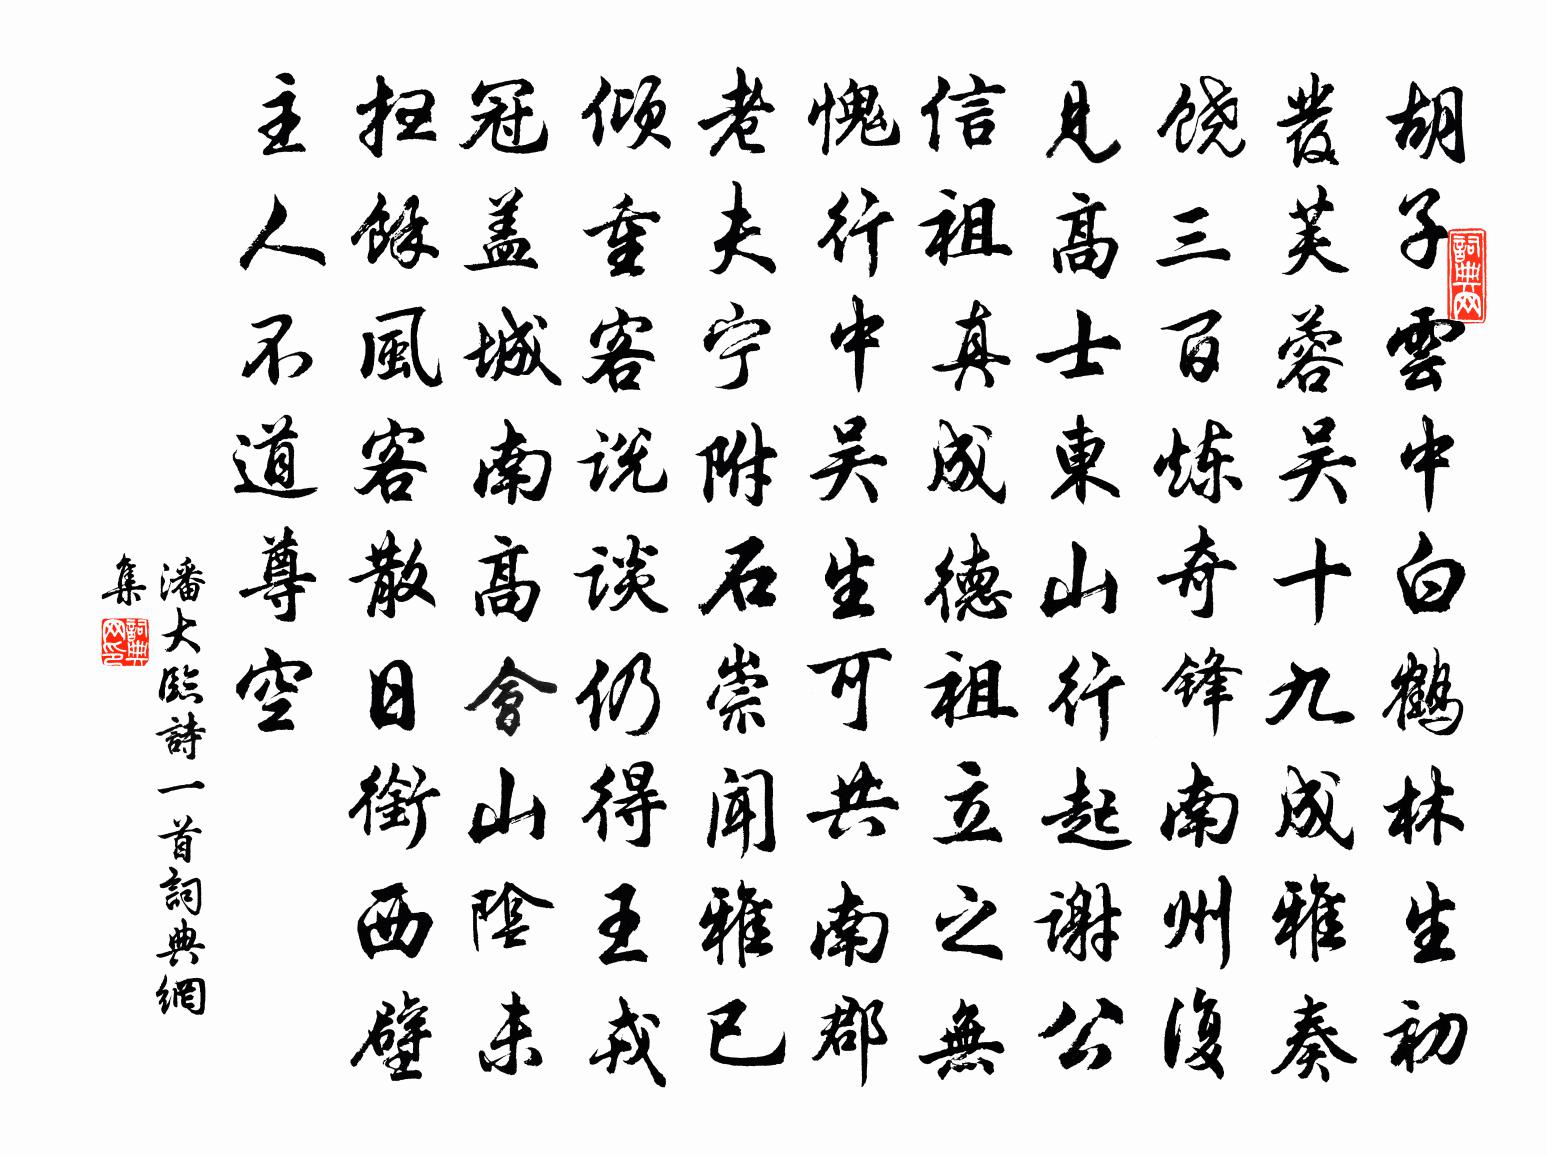 胡子雲中白鶴林生初
發芙蓉吴十九成雅奏
饶三百炼奇锋南州復
見高士東山行起谢公
信祖真成德祖立之無
愧行中吴生可共南郡
老夫宁附石崇闻雅已
倾重客说谈仍得王戎
冠盖城南高會山陰未
扭餘風客散日銜西壁
主人不道尊空
潘大臨詩一首詞典網
集
詞典网
詞典网印